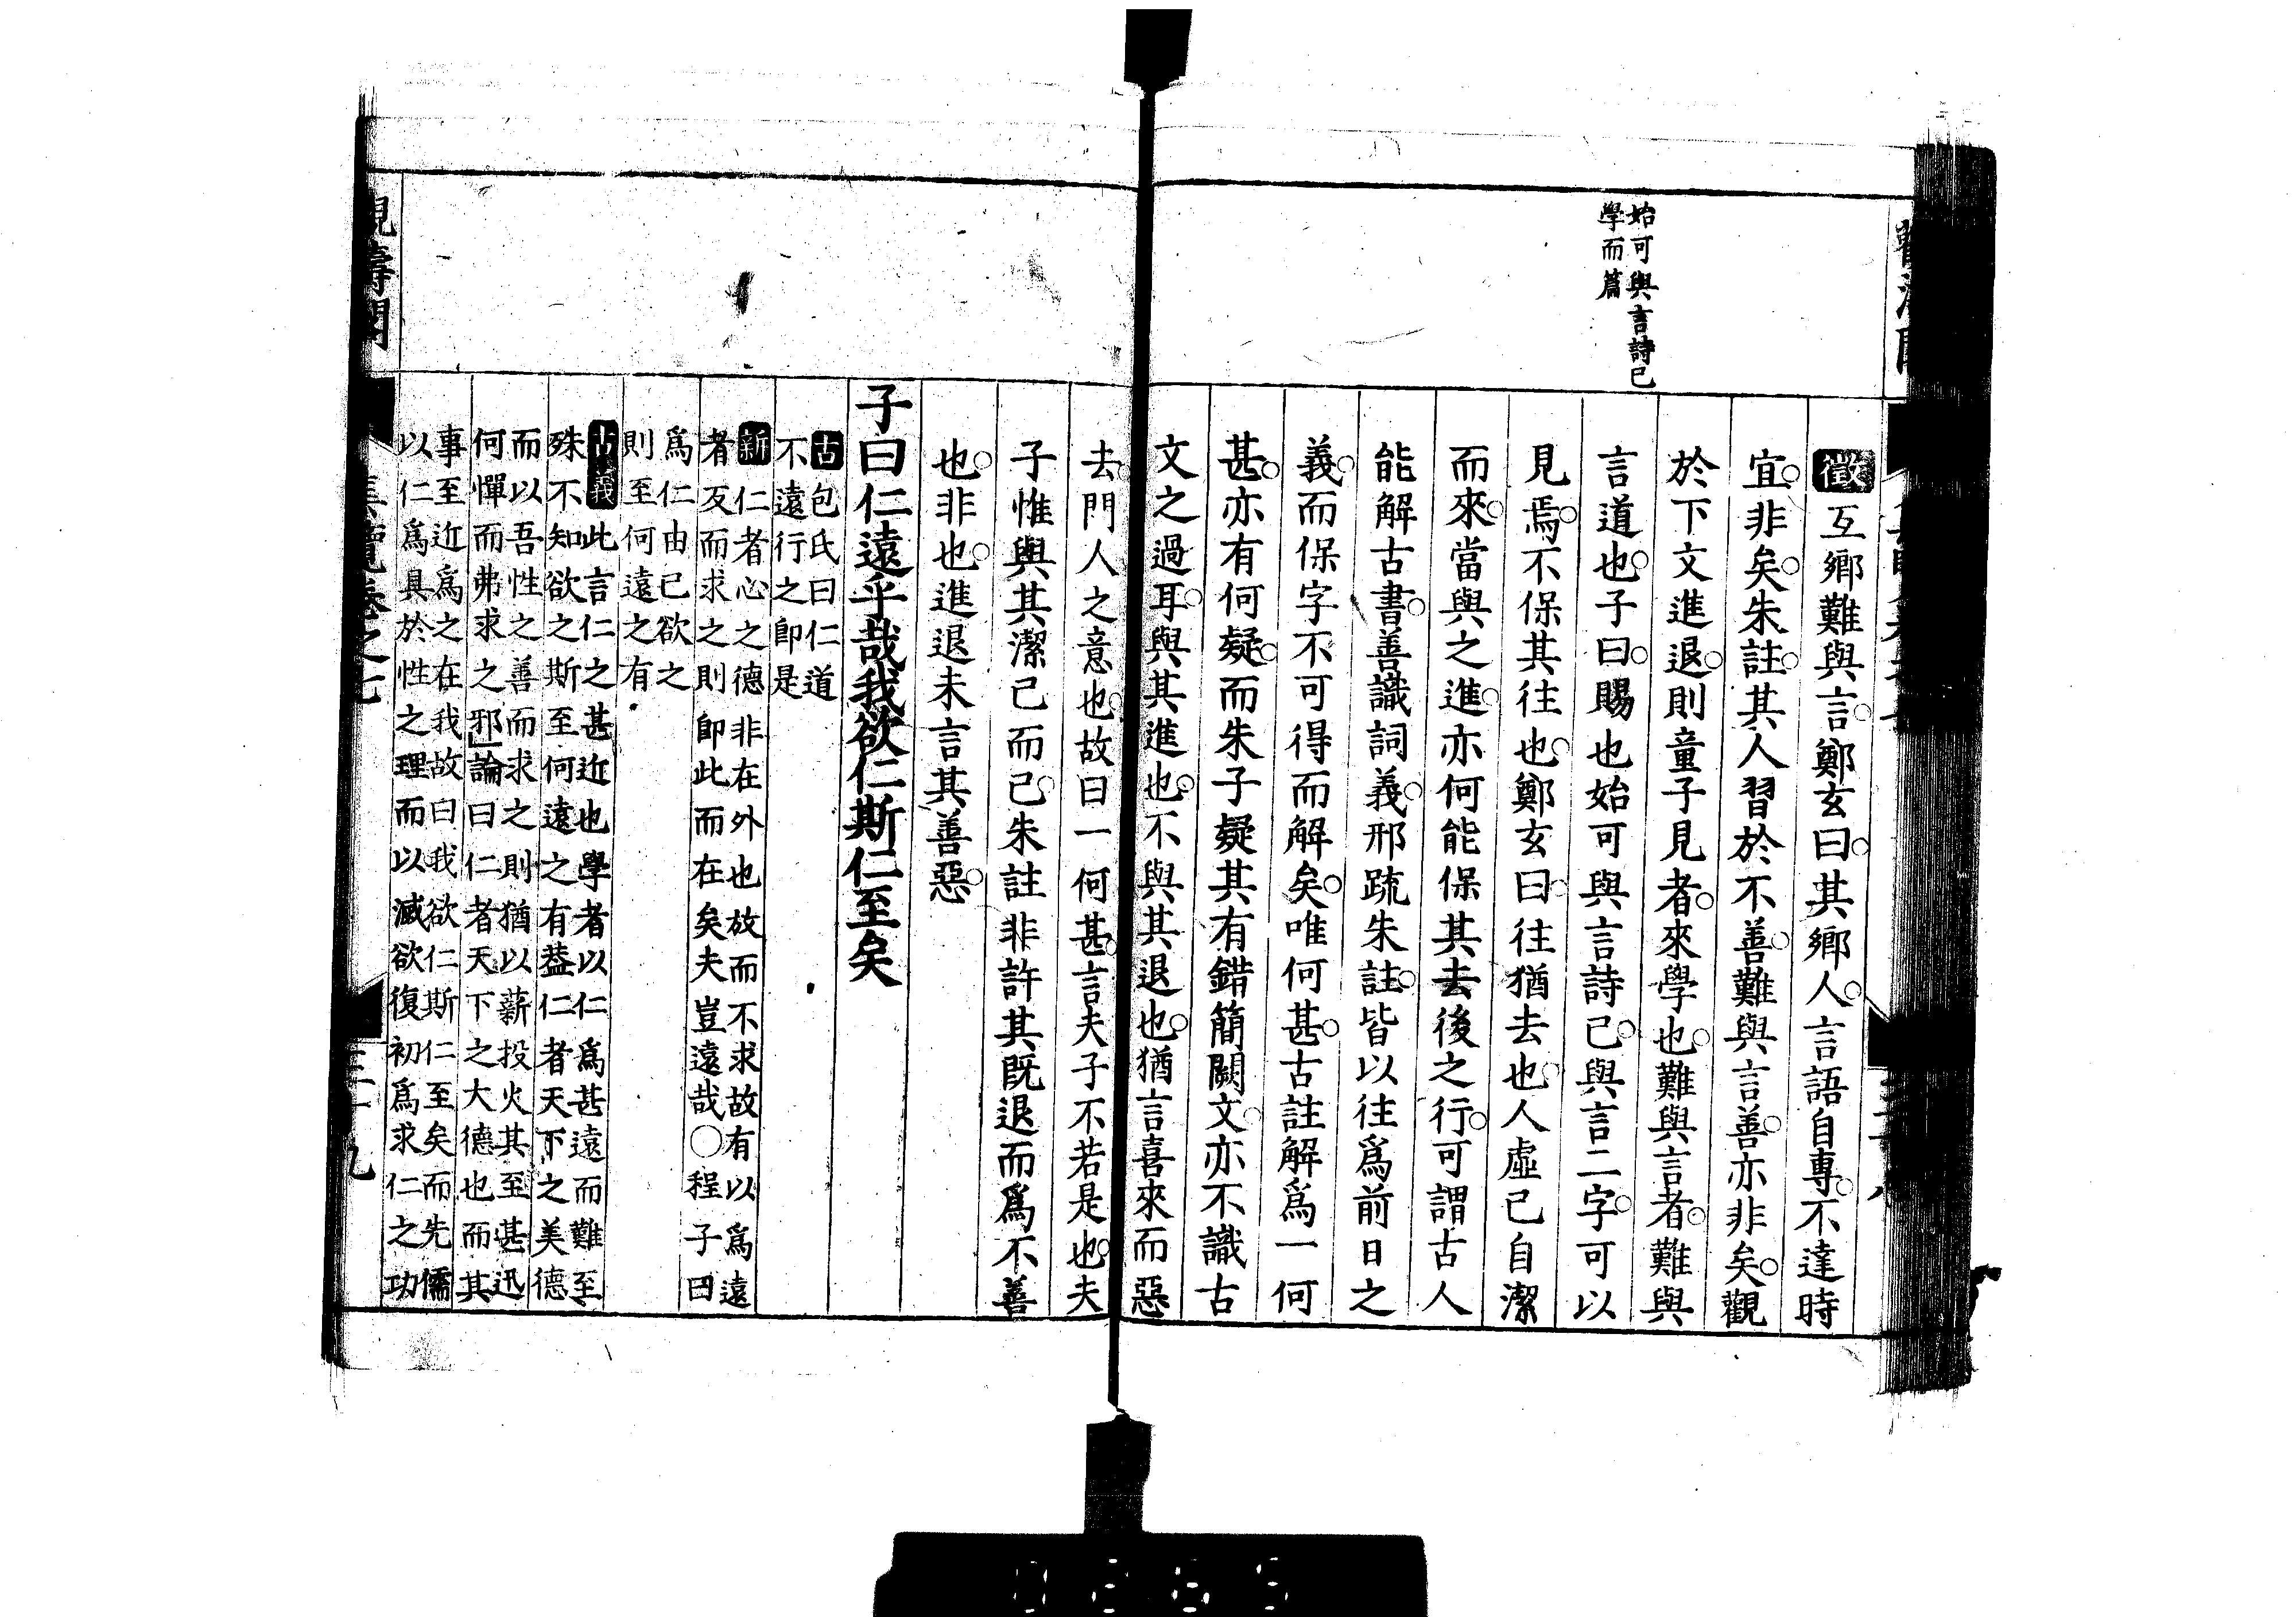 始可與言詩已
學而篇
徵互鄉難與言○鄭玄曰○其鄉人○言語自專○不達時
宜○非矣○朱註○其人習於不善○難與言善○亦非矣○觀
於下文進退○則童子見者○來學也○難與言者○難與
言道也○子曰○賜也始可與言詩已○與言二字○可以
見焉○不保其往也○鄭玄曰○往猶去也○人虛己自潔
而來○當與之進○亦何能保其去後之行○可謂古人
能解古書○善識詞義○邢疏朱註○皆以往爲前日之
義○而保字不可得而解矣○唯何甚○古註解爲一何
甚○亦有何疑○而朱子疑其有錯簡闕文○亦不識古
文之過耳○與其進也○不與其退也○猶言喜來而惡
去○門人之意也○故曰一何甚○言夫子不若是也○夫
子惟與其潔己而已○朱註非許其既退而爲不善
也○非也○進退未言其善惡○
子曰仁遠乎哉我欲仁斯仁至矣
古包氏曰仁道
不遠行之卽是
新仁者心之德非在外也放而不求故有以爲遠
者反而求之則卽此而在矣夫豈遠哉○程子曰
爲仁由已欲之
則至何遠之有
古義此言仁之甚近也學者以仁爲甚遠而難至
殊不知欲之斯至何遠之有葢仁者天下之美德
而以吾性之善而求之則猶以薪投火其至甚迅
何憚而弗求之邪」論曰仁者天下之大德也而其
事至近爲之在我故曰我欲仁斯仁至矣而先儒
以仁爲具於性之理而以滅欲復初爲求仁之功
覽卷之七